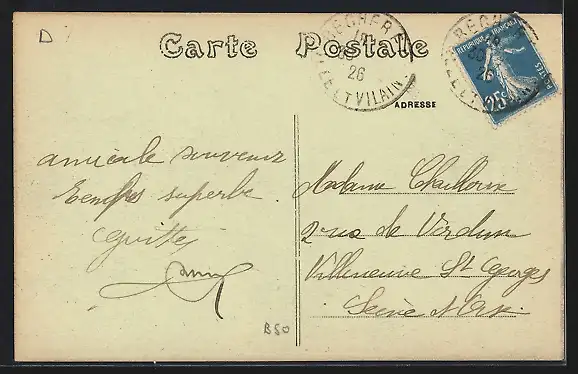 D
Carte Postale
RÉPUBLIQUE FRANÇAISE
POSTES
25c
26
ILLE ET VILAINE
26
ADRESSE
amicale souvenir
Temps superbe
Madame
2 rue de Verdun
Villeneuve St Georges
Seine et Oise
B50